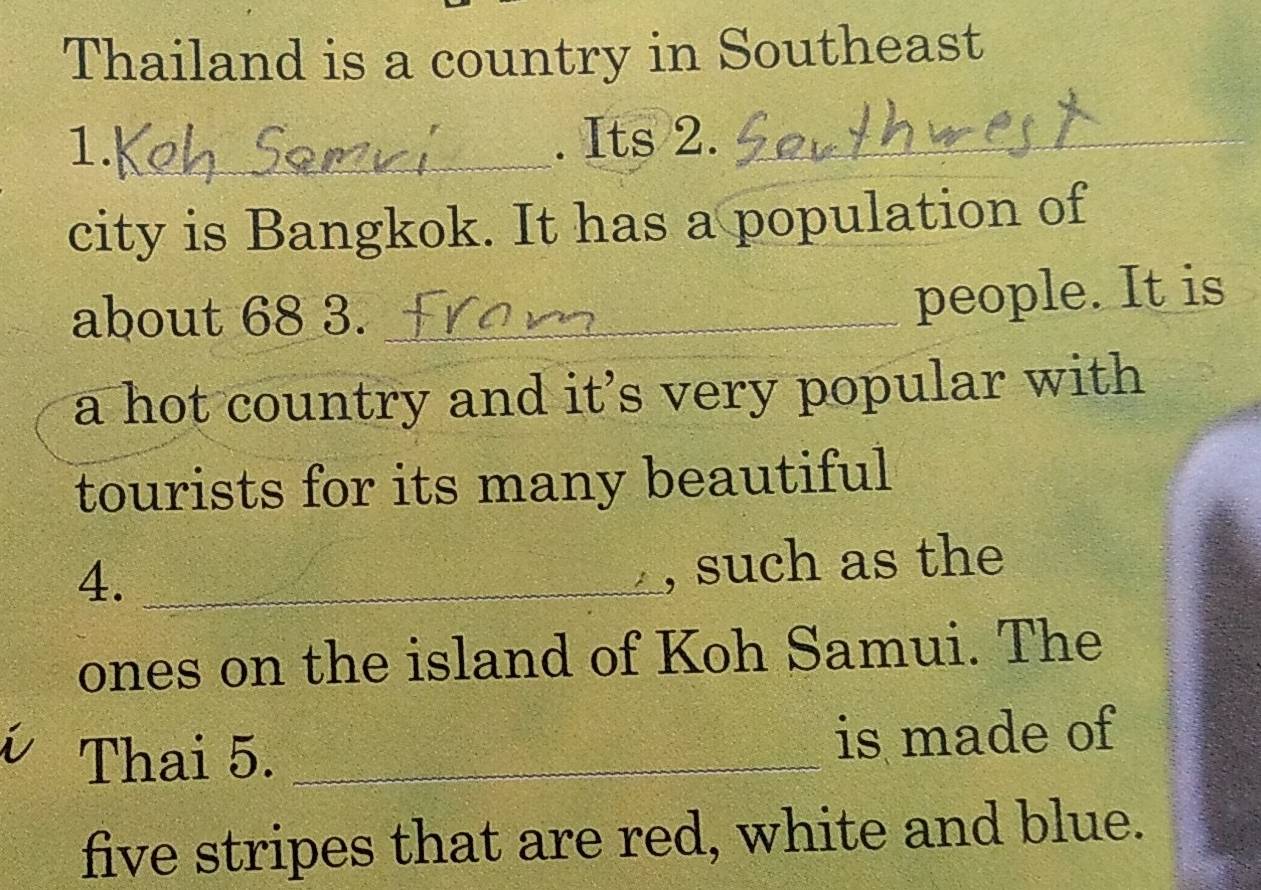 Thailand is a country in Southeast
1. Koh Samui. Its 2. Southwest
city is Bangkok. It has a population of
about 68 3. from people. It is
a hot country and it's very popular with
tourists for its many beautiful
4. , such as the
ones on the island of Koh Samui. The
Thai 5. is made of
five stripes that are red, white and blue.